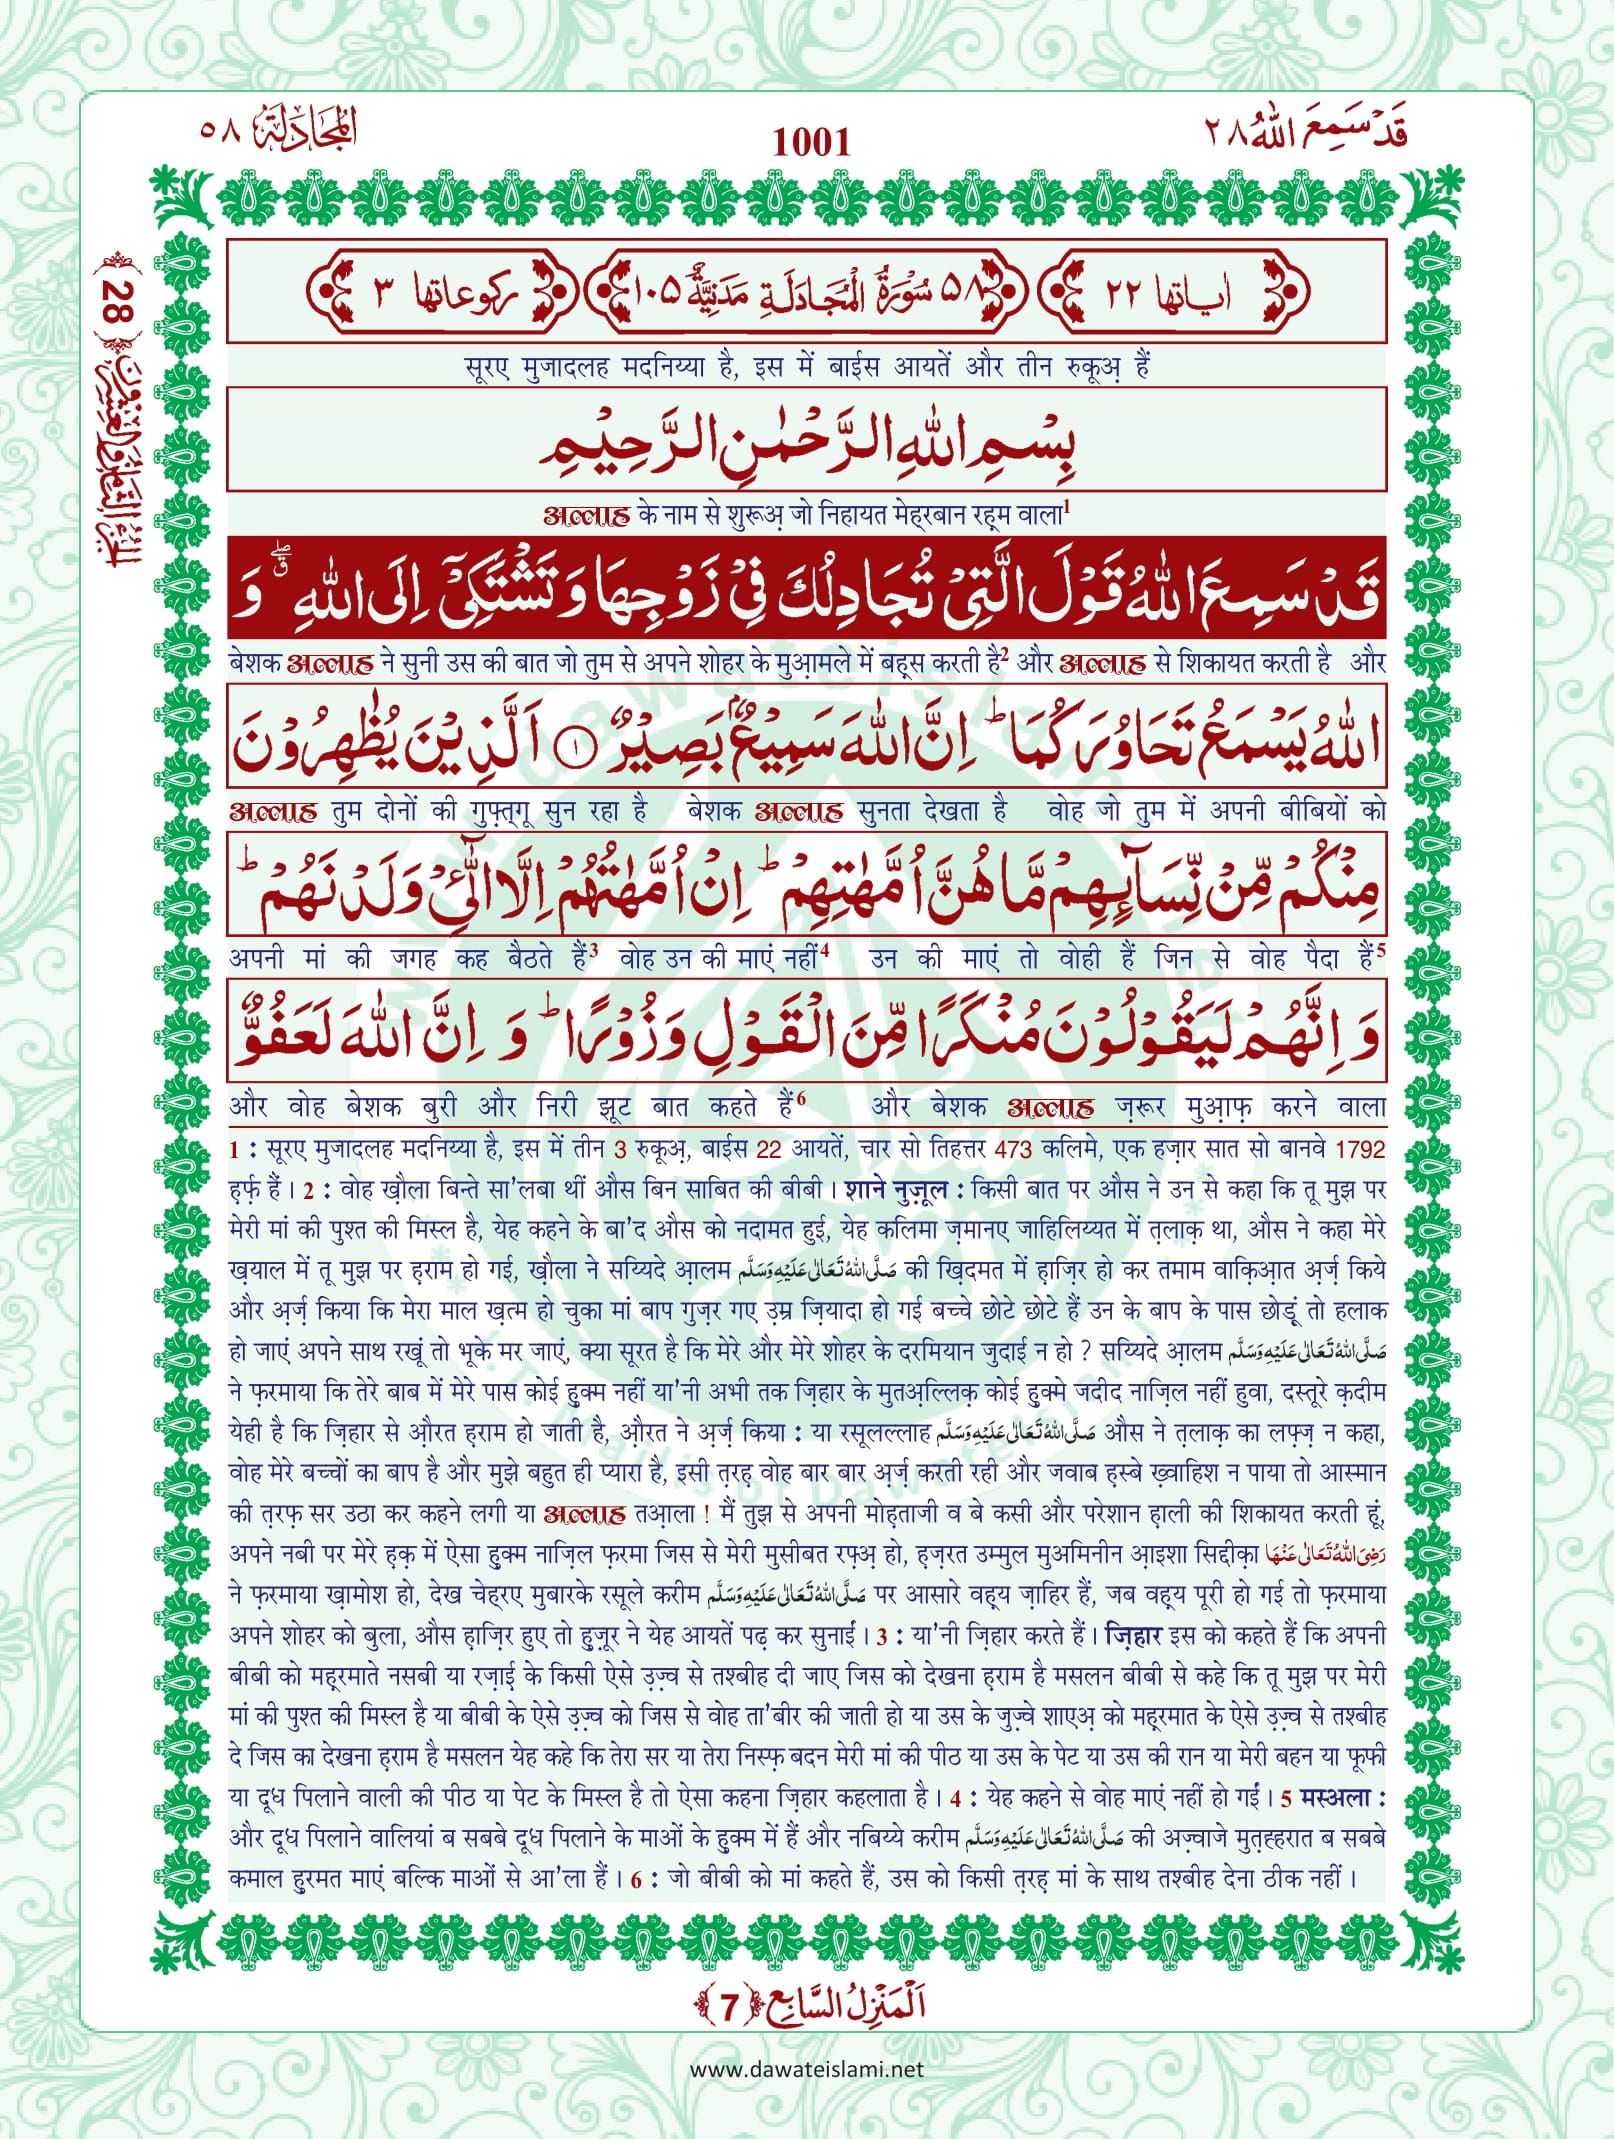 قَدْ سَمِعَ اللّٰهُ ٢٨
1001
المُجَادَلَة ٥٨
اٰیاتها ٢٢
٥٨ سُوْرَةُ الْمُجَادَلَةِ مَدَنِيَّةٌ ١٠٥
رکوعاتها ٣
सूरए मुजादलह मदनिय्या है, इस में बाईस आयतें और तीन रुकूअ़ हैं
بِسْمِ اللّٰهِ الرَّحْمٰنِ الرَّحِیْمِ
अल्लाह के नाम से शुरूअ़ जो निहायत मेहरबान रह़म वाला1
قَدْ سَمِعَ اللّٰهُ قَوْلَ الَّتِیْ تُجَادِلُكَ فِیْ زَوْجِهَا وَ تَشْتَكِیْۤ اِلَى اللّٰهِ ۖۗ وَ
बेशक अल्लाह ने सुनी उस की बात जो तुम से अपने शोहर के मुआ़मले में बह़स करती है2 और अल्लाह से शिकायत करती है और
اللّٰهُ یَسْمَعُ تَحَاوُرَكُمَاؕ اِنَّ اللّٰهَ سَمِیْعٌۢ بَصِیْرٌ ۝۱ اَلَّذِیْنَ یُظٰهِرُوْنَ
अल्लाह तुम दोनों की गुफ़्त्गू सुन रहा है बेशक अल्लाह सुनता देखता है वोह जो तुम में अपनी बीबियों को
مِنْكُمْ مِّنْ نِّسَآىٕهِمْ مَّا هُنَّ اُمَّهٰتِهِمْؕ اِنْ اُمَّهٰتُهُمْ اِلَّا الّٰٓـِٔیْ وَلَدْنَهُمْؕ
अपनी मां की जगह कह बैठते हैं3 वोह उन की माएं नहीं4 उन की माएं तो वोही हैं जिन से वोह पैदा हैं5
وَ اِنَّهُمْ لَیَقُوْلُوْنَ مُنْكَرًا مِّنَ الْقَوْلِ وَ زُوْرًاؕ وَ اِنَّ اللّٰهَ لَعَفُوٌّ
और वोह बेशक बुरी और निरी झूट बात कहते हैं6 और बेशक अल्लाह ज़रूर मुआ़फ़ करने वाला
1 : सूरए मुजादलह मदनिय्या है, इस में तीन 3 रुकूअ़, बाईस 22 आयतें, चार सो तिहत्तर 473 कलिमे, एक हज़ार सात सो बानवे 1792
ह़र्फ़ हैं। 2 : वोह ख़ौला बिन्ते सा'लबा थीं औस बिन साबित की बीबी। शाने नुज़ूल : किसी बात पर औस ने उन से कहा कि तू मुझ पर
मेरी मां की पुश्त की मिस्ल है, येह कहने के बा'द औस को नदामत हुई, येह कलिमा ज़मानए जाहिलिय्यत में त़लाक़ था, औस ने कहा मेरे
ख़याल में तू मुझ पर ह़राम हो गई, ख़ौला ने सय्यिदे आ़लम صَلَّى اللّٰهُ تَعَالٰى عَلَيْهِ وَسَلَّم की ख़िदमत में ह़ाज़िर हो कर तमाम वाक़िआ़त अ़र्ज़ किये
और अ़र्ज़ किया कि मेरा माल ख़त्म हो चुका मां बाप गुज़र गए उ़म्र ज़ियादा हो गई बच्चे छोटे छोटे हैं उन के बाप के पास छोडूं तो हलाक
हो जाएं अपने साथ रखूं तो भूके मर जाएं, क्या सूरत है कि मेरे और मेरे शोहर के दरमियान जुदाई न हो ? सय्यिदे आ़लम صَلَّى اللّٰهُ تَعَالٰى عَلَيْهِ وَسَلَّم
ने फ़रमाया कि तेरे बाब में मेरे पास कोई हुक्म नहीं या'नी अभी तक ज़िहार के मुतअ़ल्लिक़ कोई हुक्मे जदीद नाज़िल नहीं हुवा, दस्तूरे क़दीम
येही है कि ज़िहार से औ़रत ह़राम हो जाती है, औ़रत ने अ़र्ज़ किया : या रसूलल्लाह صَلَّى اللّٰهُ تَعَالٰى عَلَيْهِ وَسَلَّم औस ने त़लाक़ का लफ़्ज़ न कहा,
वोह मेरे बच्चों का बाप है और मुझे बहुत ही प्यारा है, इसी त़रह़ वोह बार बार अ़र्ज़ करती रही और जवाब ह़स्बे ख़्वाहिश न पाया तो आस्मान
की त़रफ़ सर उठा कर कहने लगी या अल्लाह तआ़ला ! मैं तुझ से अपनी मोह़ताजी व बे कसी और परेशान ह़ाली की शिकायत करती हूं,
अपने नबी पर मेरे ह़क़ में ऐसा हुक्म नाज़िल फ़रमा जिस से मेरी मुसीबत रफ़्अ़ हो, ह़ज़रत उम्मुल मुअमिनीन आ़इशा सिद्दीक़ा رَضِىَ اللّٰهُ تَعَالٰى عَنْهَا
ने फ़रमाया ख़ामोश हो, देख चेहरए मुबारके रसूले करीम صَلَّى اللّٰهُ تَعَالٰى عَلَيْهِ وَسَلَّم पर आसारे वह़्य ज़ाहिर हैं, जब वह़्य पूरी हो गई तो फ़रमाया
अपने शोहर को बुला, औस ह़ाज़िर हुए तो हुज़ूर ने येह आयतें पढ़ कर सुनाईं। 3 : या'नी ज़िहार करते हैं। ज़िहार इस को कहते हैं कि अपनी
बीबी को मह़रमाते नसबी या रज़ाई के किसी ऐसे उ़ज़्व से तश्बीह दी जाए जिस को देखना ह़राम है मसलन बीबी से कहे कि तू मुझ पर मेरी
मां की पुश्त की मिस्ल है या बीबी के ऐसे उ़ज़्व को जिस से वोह ता'बीर की जाती हो या उस के जुज़्वे शाएअ़ को मह़रमात के ऐसे उ़ज़्व से तश्बीह
दे जिस का देखना ह़राम है मसलन येह कहे कि तेरा सर या तेरा निस्फ़ बदन मेरी मां की पीठ या उस के पेट या उस की रान या मेरी बहन या फूफी
या दूध पिलाने वाली की पीठ या पेट के मिस्ल है तो ऐसा कहना ज़िहार कहलाता है। 4 : येह कहने से वोह माएं नहीं हो गईं। 5 मस्अला :
और दूध पिलाने वालियां ब सबबे दूध पिलाने के माओं के हुक्म में हैं और नबिय्ये करीम صَلَّى اللّٰهُ تَعَالٰى عَلَيْهِ وَسَلَّم की अज़्वाजे मुत़ह्हरात ब सबबे
कमाल हुरमत माएं बल्कि माओं से आ'ला हैं। 6 : जो बीबी को मां कहते हैं, उस को किसी त़रह़ मां के साथ तश्बीह देना ठीक नहीं।
اَلْمَنْزِلُ السَّابِع ﴿7﴾
www.dawateislami.net